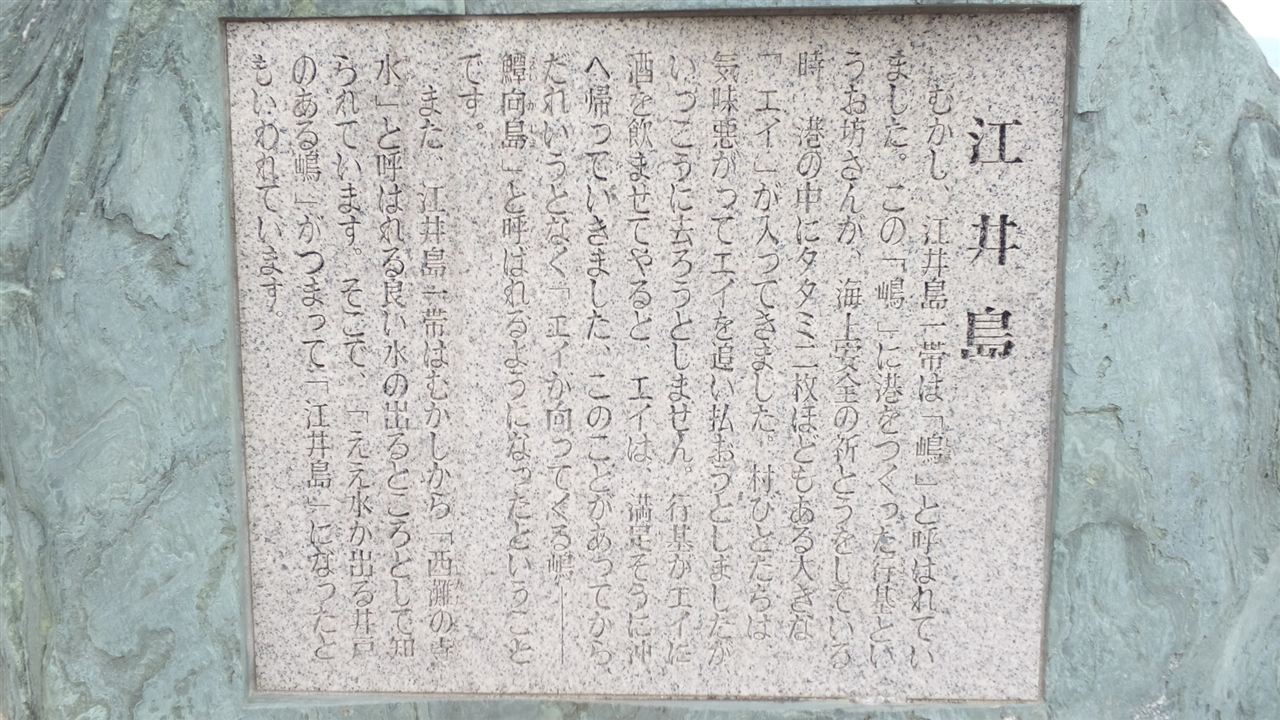 江井島
むかし、江井島一帯は「嶋」と呼ばれてい
ました。この「嶋」に港をつくった行基とい
うお坊さんが、海上安全の祈とうをしている
時、港の中にタタミ二枚ほどもある大きな
「エイ」が入ってきました。村びとたちは
気味悪がってエイを追い払おうとしましたが
いっこうに去ろうとしません。行基がエイに
酒を飲ませてやると、エイは、満足そうに沖
へ帰っていきました。このことがあってから、
だれいうとなく「エイが向ってくる嶋──
鱏向島」と呼ばれるようになったということ
です。
また、江井島一帯はむかしから「西灘の寺
水」と呼ばれる良い水の出るところとして知
られています。そこで、「ええ水が出る井戸
のある嶋」がつまって「江井島」になったと
もいわれています。